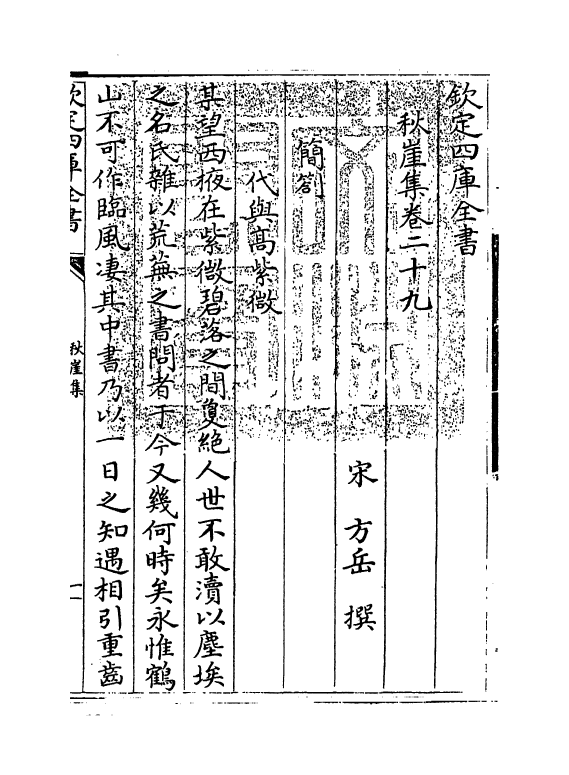 欽定四庫全書
秋崖集卷二十九
宋 方岳 撰
簡劄
代與髙紫微
某望西掖在紫微碧落之間夐絶人世不敢瀆以塵埃
之名氏雜以荒蕪之書問者于今又幾何時矣永惟鶴
山不可作臨風淒其中書乃以一日之知遇相引重齒
欽定四庫全書
秋崖集
一